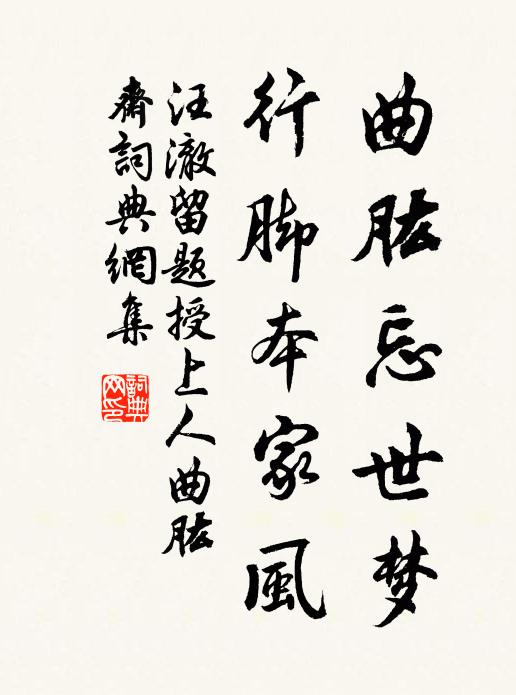 曲肱忘世梦
行脚本家風
汪澈留题授上人曲肱
齋詞典網集
詞典
网印